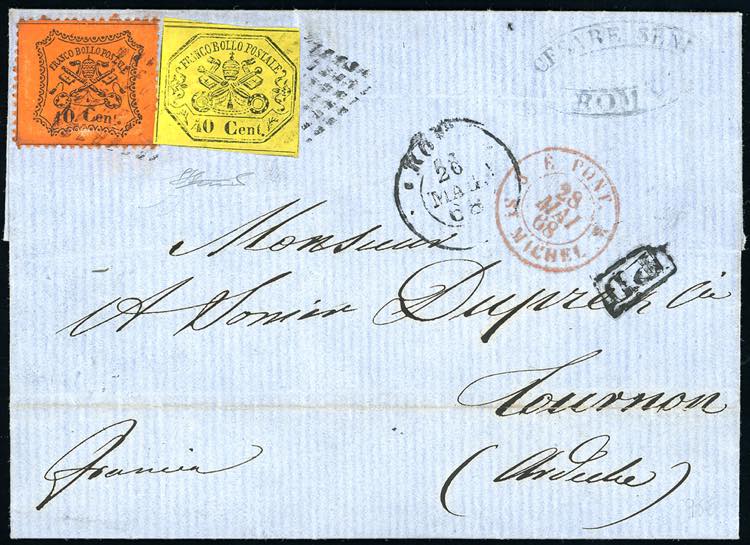 FRANCO BOLLO POSTALE
10 Cent.
FRANCO BOLLO POSTALE
40 Cent.
CESARE
ROM
26
68
E. PONT
28
MAI
68
ST MICHEL
PD
Monsieur
A Sonier Dupré &
Tournon
(Ardeche)
Francia